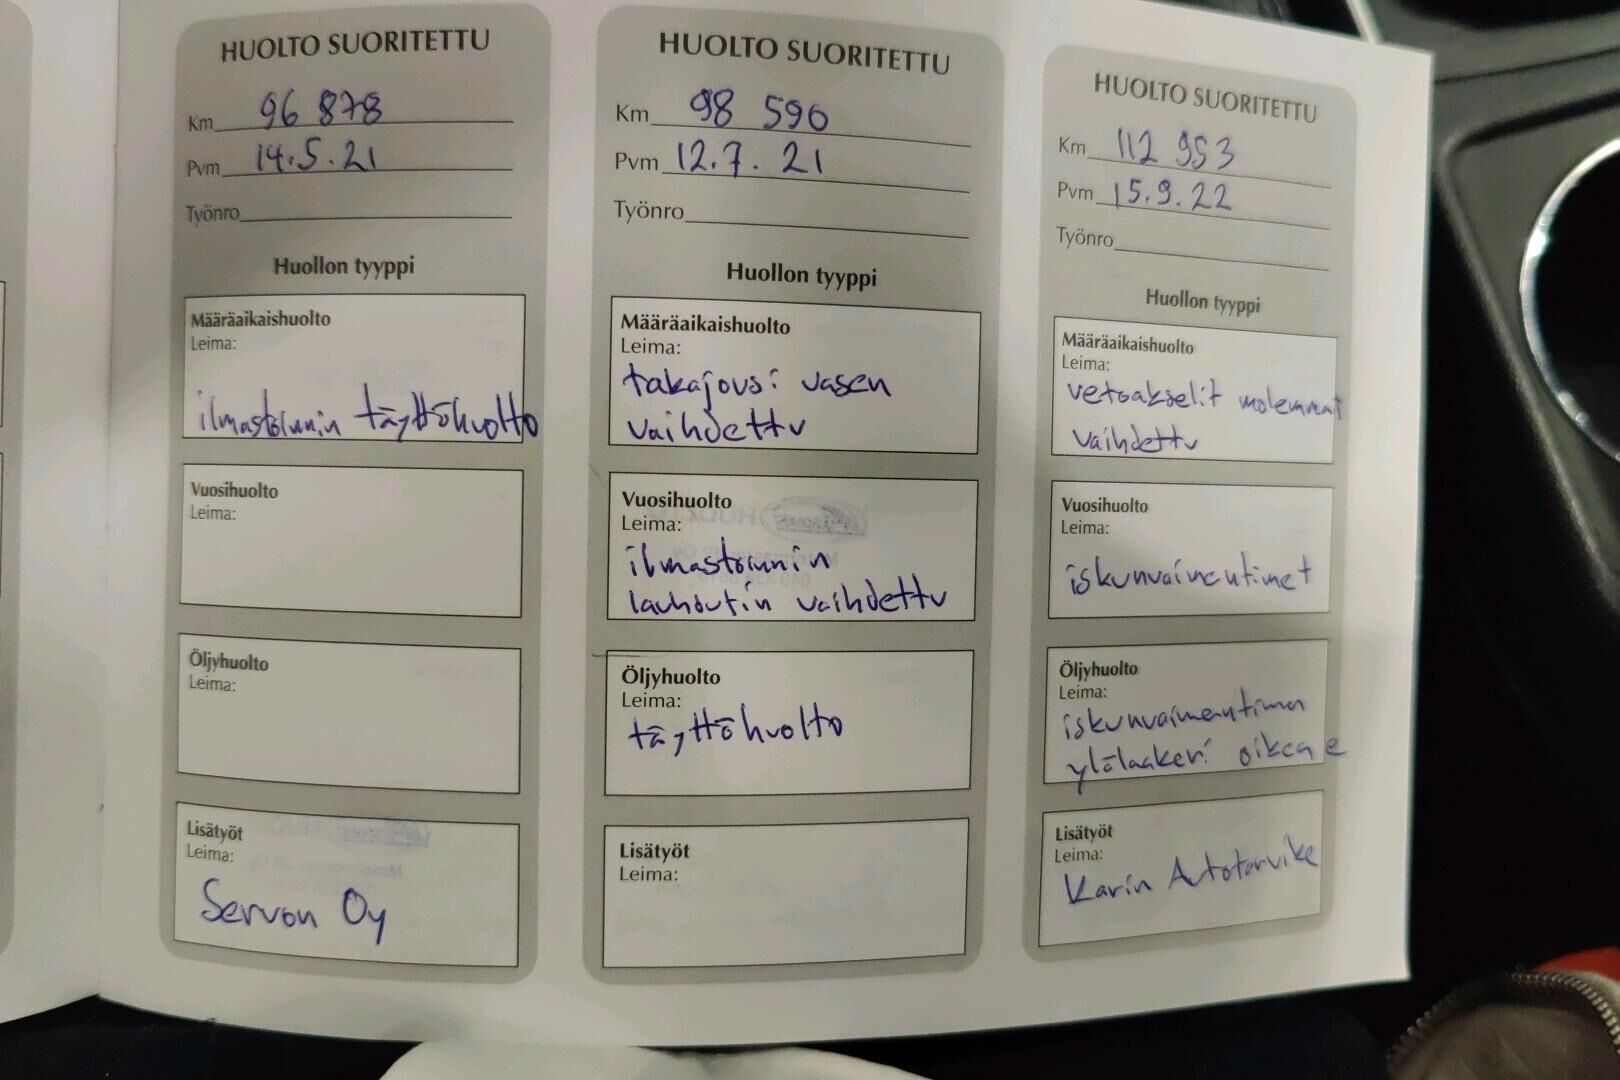 HUOLTO SUORITETTU
Km 96 878
Pvm 14.5.21
Työnro
Huollon tyyppi
Määräaikaishuolto
Leima:
ilmastoinnin täyttöhuolto
Vuosihuolto
Leima:
Öljyhuolto
Leima:
Lisätyöt
Leima:
Servon Oy
HUOLTO SUORITETTU
Km 98 590
Pvm 12.7.21
Työnro
Huollon tyyppi
Määräaikaishuolto
Leima:
takajousi vasen
vaihdettu
Vuosihuolto
Leima:
ilmastoinnin
lauhdutin vaihdettu
Öljyhuolto
Leima:
täyttöhuolto
Lisätyöt
Leima:
HUOLTO SUORITETTU
Km 112 953
Pvm 15.9.22
Työnro
Huollon tyyppi
Määräaikaishuolto
Leima:
vetoakselit molemmat
vaihdettu
Vuosihuolto
Leima:
iskunvaimentimet
Öljyhuolto
Leima:
iskunvaimentimen
ylälaakeri oikea e
Lisätyöt
Leima:
Karin Autotarvike